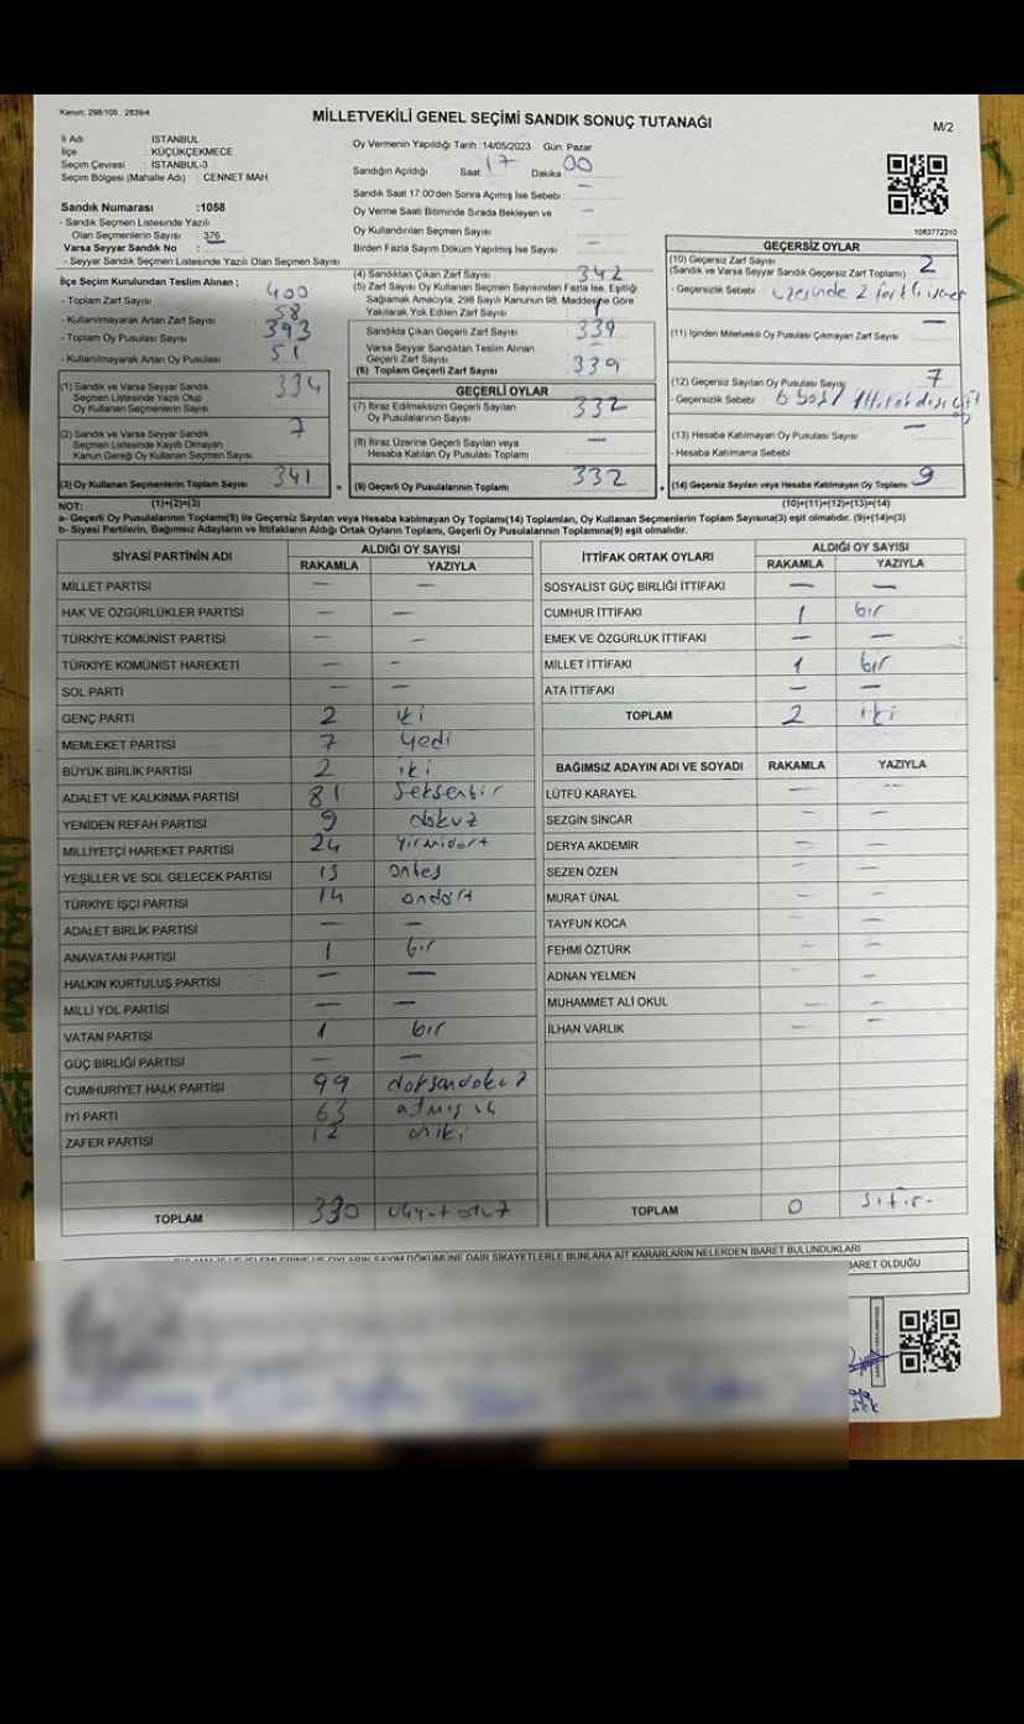 Kanun: 298/105 , 2839/4
MİLLETVEKİLİ GENEL SEÇİMİ SANDIK SONUÇ TUTANAĞI
M/2
İl Adı : İSTANBUL
İlçe : KÜÇÜKÇEKMECE
Seçim Çevresi : İSTANBUL-3
Seçim Bölgesi (Mahalle Adı) : CENNET MAH
Sandık Numarası :1058
- Sandık Seçmen Listesinde Yazılı
Olan Seçmenlerin Sayısı : 376
Varsa Seyyar Sandık No :
- Seyyar Sandık Seçmen Listesinde Yazılı Olan Seçmen Sayısı :
Oy Vermenin Yapıldığı Tarih : 14/05/2023 Gün: Pazar
Sandığın Açıldığı Saat 17 Dakika 00
Sandık Saat 17:00'den Sonra Açılmış İse Sebebi : —
Oy Verme Saati Bitiminde Sırada Bekleyen ve
Oy Kullandırılan Seçmen Sayısı : —
Birden Fazla Sayım Döküm Yapılmış İse Sayısı : —
1083772310
İlçe Seçim Kurulundan Teslim Alınan ;
- Toplam Zarf Sayısı : 400
- Kullanılmayarak Artan Zarf Sayısı : 58
- Toplam Oy Pusulası Sayısı : 393
- Kullanılmayarak Artan Oy Pusulası : 51
(1) Sandık ve Varsa Seyyar Sandık
Seçmen Listesinde Yazılı Olup
Oy Kullanan Seçmenlerin Sayısı : 334
(2) Sandık ve Varsa Seyyar Sandık
Seçmen Listesinde Kayıtlı Olmayan
Kanun Gereği Oy Kullanan Seçmen Sayısı : 7
(3) Oy Kullanan Seçmenlerin Toplam Sayısı : 341 =
(1)+(2)=(3)
(4) Sandıktan Çıkan Zarf Sayısı : 342
(5) Zarf Sayısı Oy Kullanan Seçmen Sayısından Fazla İse, Eşitliği
Sağlamak Amacıyla, 298 Sayılı Kanunun 98. Maddesine Göre
Yakılarak Yok Edilen Zarf Sayısı : 1
Sandıkta Çıkan Geçerli Zarf Sayısı : 339
Varsa Seyyar Sandıktan Teslim Alınan
Geçerli Zarf Sayısı : —
(6) Toplam Geçerli Zarf Sayısı : 339
GEÇERLİ OYLAR
(7) İtiraz Edilmeksizin Geçerli Sayılan
Oy Pusulalarının Sayısı : 332
(8) İtiraz Üzerine Geçerli Sayılan veya
Hesaba Katılan Oy Pusulası Toplamı : —
(9) Geçerli Oy Pusulalarının Toplamı : 332 +
GEÇERSİZ OYLAR
(10) Geçersiz Zarf Sayısı
(Sandık ve Varsa Seyyar Sandık Geçersiz Zarf Toplamı) : 2
- Geçersizlik Sebebi : üzerinde 2 farklı
(11) İçinden Milletvekili Oy Pusulası Çıkmayan Zarf Sayısı : —
(12) Geçersiz Sayılan Oy Pusulası Sayısı : 7
- Geçersizlik Sebebi : 6 boş/
(13) Hesaba Katılmayan Oy Pusulası Sayısı : —
- Hesaba Katılmama Sebebi :
(14) Geçersiz Sayılan veya Hesaba Katılmayan Oy Toplamı : 9
(10)+(11)+(12)+(13)=(14)
NOT:
a- Geçerli Oy Pusulalarının Toplamı(9) ile Geçersiz Sayılan veya Hesaba katılmayan Oy Toplamı(14) Toplamları, Oy Kullanan Seçmenlerin Toplam Sayısına(3) eşit olmalıdır. (9)+(14)=(3)
b- Siyasi Partilerin, Bağımsız Adayların ve İttifakların Aldığı Ortak Oyların Toplamı, Geçerli Oy Pusulalarının Toplamına(9) eşit olmalıdır.
SİYASİ PARTİNİN ADI ALDIĞI OY SAYISI
RAKAMLA YAZIYLA
MİLLET PARTİSİ — —
HAK VE ÖZGÜRLÜKLER PARTİSİ — —
TÜRKİYE KOMÜNİST PARTİSİ — —
TÜRKİYE KOMÜNİST HAREKETİ — —
SOL PARTİ — —
GENÇ PARTİ 2 iki
MEMLEKET PARTİSİ 7 yedi
BÜYÜK BİRLİK PARTİSİ 2 iki
ADALET VE KALKINMA PARTİSİ 81 seksenbir
YENİDEN REFAH PARTİSİ 9 dokuz
MİLLİYETÇİ HAREKET PARTİSİ 24 yirmidört
YEŞİLLER VE SOL GELECEK PARTİSİ 15 onbeş
TÜRKİYE İŞÇİ PARTİSİ 14 ondört
ADALET BİRLİK PARTİSİ — —
ANAVATAN PARTİSİ 1 bir
HALKIN KURTULUŞ PARTİSİ — —
MİLLİ YOL PARTİSİ — —
VATAN PARTİSİ 1 bir
GÜÇ BİRLİĞİ PARTİSİ — —
CUMHURİYET HALK PARTİSİ 99 doksandokuz
İYİ PARTİ 63 atmış üç
ZAFER PARTİSİ 12 oniki
TOPLAM 330 üçyüz otuz
İTTİFAK ORTAK OYLARI ALDIĞI OY SAYISI
RAKAMLA YAZIYLA
SOSYALİST GÜÇ BİRLİĞİ İTTİFAKI — —
CUMHUR İTTİFAKI 1 bir
EMEK VE ÖZGÜRLÜK İTTİFAKI — —
MİLLET İTTİFAKI 1 bir
ATA İTTİFAKI — —
TOPLAM 2 iki
BAĞIMSIZ ADAYIN ADI VE SOYADI RAKAMLA YAZIYLA
LÜTFÜ KARAYEL — —
SEZGİN SİNCAR — —
DERYA AKDEMİR — —
SEZEN ÖZEN — —
MURAT ÜNAL — —
TAYFUN KOCA — —
FEHMİ ÖZTÜRK — —
ADNAN YELMEN — —
MUHAMMET ALİ OKUL — —
İLHAN VARLIK — —
TOPLAM 0 sıfır
OYLARIN SAYIM DÖKÜMÜNE DAİR ŞİKAYETLERLE BUNLARA AİT KARARLARIN NELERDEN İBARET BULUNDUKLARI
İBARET OLDUĞU